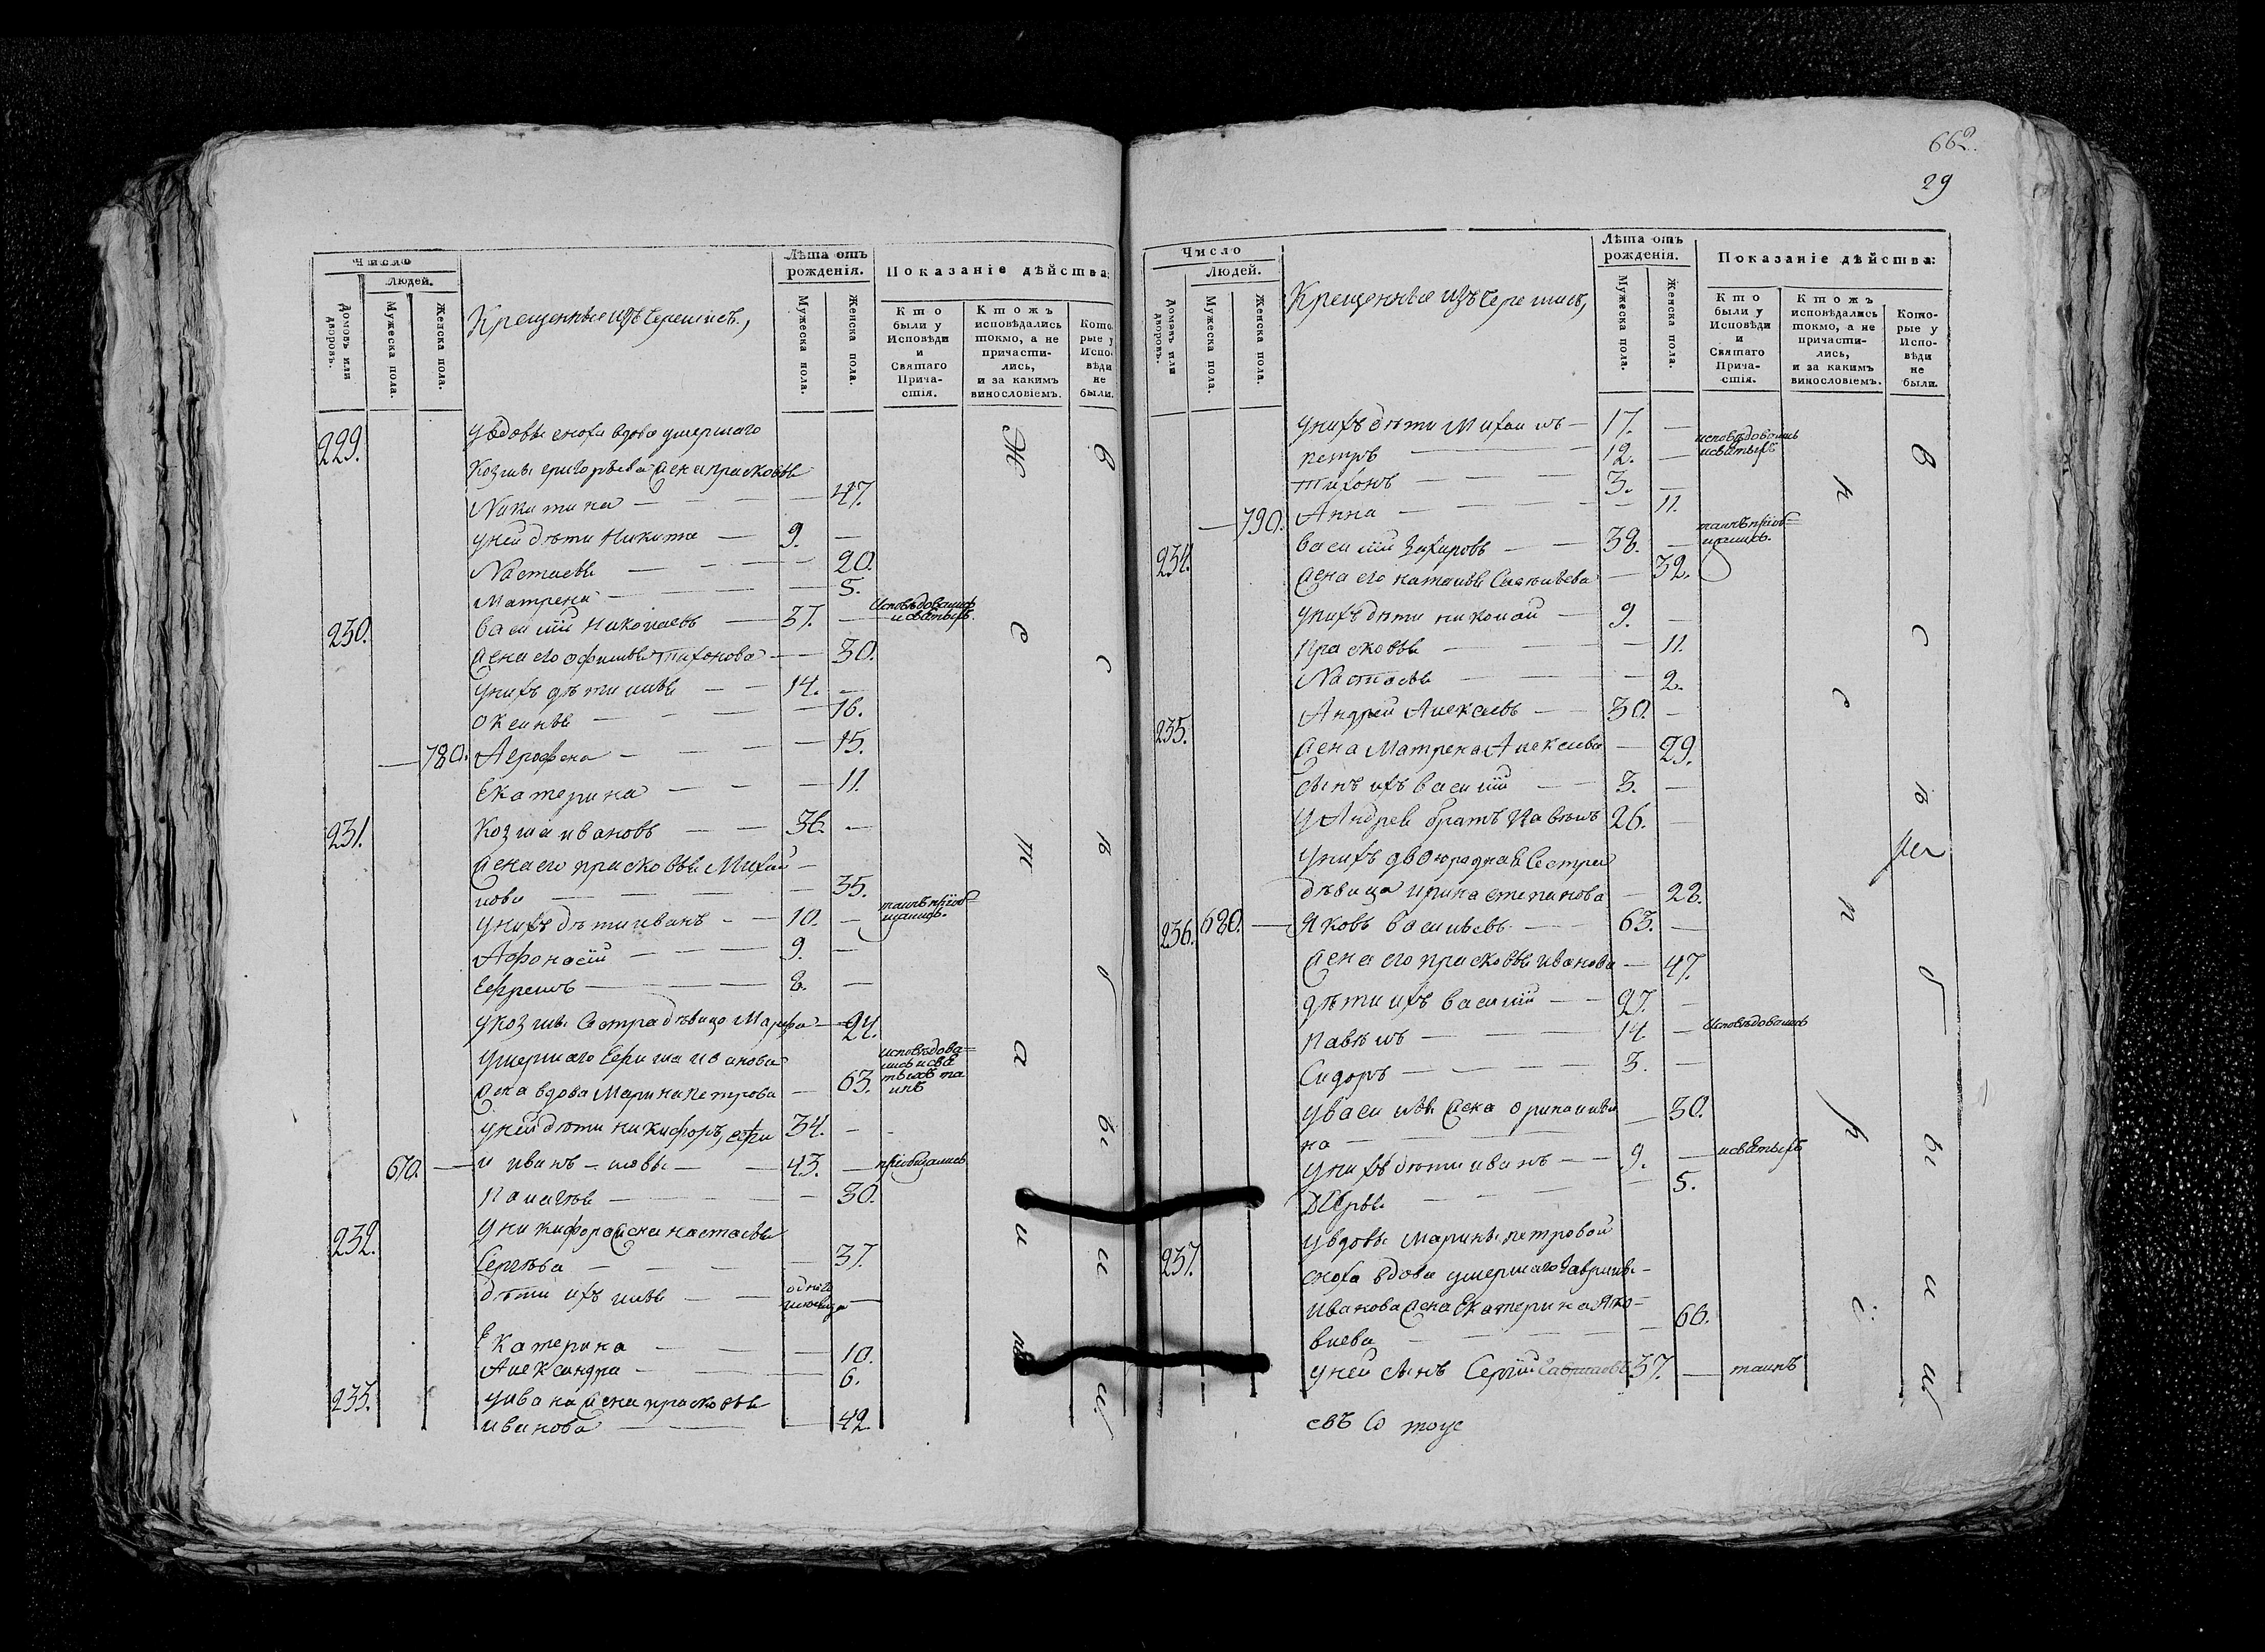 Число
Людей.
Домовъ или дворовъ.
Мужеска пола.
Женска пола.
Крещенные изъ Черемисъ,
Лѣта отъ рожденія.
Мужеска пола.
Женска пола.
Показаніе дѣйства:
Кто были у Исповѣди и Святаго Причастія.
Ктожъ исповѣдались токмо, а не причастились, и за какимъ винословіемъ.
Которые у Исповѣди не были.
229. увдовы сноха вдова умершаго
козмы григорьева жена прасковья
Никитина — 47.
уней дѣти Никита — 9. —
Настасья — 20.
Матрена — 5.
230. василій Николаевъ — 37. — Исповѣдовались исвятыхъ
жена его офимья тихонова — 30.
унихъ дѣти илья — 14. —
оксинья — 16.
— 780. Агрофена — 15.
Екатерина — 11.
231. Козма ивановъ — 36. —
жена его прасковья Михай
лова — 35.
унихъ дѣти иванъ — 10. — таинъ пріоб=
щались.
Афонасій — 9. —
Ефремъ — 8. —
укозмы Сестра дѣвица Марфа — 24.
умершаго Ефима иванова
жена вдова Марина петрова — 63. исповѣдова=
лись исвя
тыхъ та
инъ
уней дѣти никифоръ, ефи 34. —
670. — и иванъ — мовы — 43. — пріобщались
Палагѣя — 30.
232. уникифора жена настасья
Сергѣева — 37.
дѣти ихъ илья —
Екатерина — 10.
Александра — 6.
233. уивана жена прасковья
иванова — 42.
662.
29
Число
Людей.
Домовъ или дворовъ.
Мужеска пола.
Женска пола.
Крещенные изъ Черемисъ,
Лѣта отъ рожденія.
Мужеска пола.
Женска пола.
Показаніе дѣйства:
Кто были у Исповѣди и Святаго Причастія.
Ктожъ исповѣдались токмо, а не причастились, и за какимъ винословіемъ.
Которые у Исповѣди не были.
унихъ дѣти Михаилъ — 17. —
петръ — 12. — исповѣдовались
исвятыхъ
тихонъ — 3. —
— 790. Анна — 11.
234. василій Захаровъ — 38. — таинъ пріоб=
щались.
жена его наталья — 32.
унихъ дѣти николай — 9. —
прасковья — 11.
Настасья — 2.
235. Андрей Алексѣевъ — 30. —
жена Матрена Алексѣева — 29.
сынъ ихъ василій — 3. —
у Андрея братъ Павелъ 26. —
унихъ двоюродная Сестра
дѣвица ирина степанова — 28.
236. 680. — Яковъ васильевъ — 63. —
жена его прасковья иванова — 47.
дѣти ихъ василій — 27. —
павелъ — 14 — Исповѣдовались
Сидоръ — 3. —
увасилья жена — 30.
на —
унихъ дѣти иванъ — 9. — исвятыхъ
Дарья — 5.
237. увдовы марины петровой
сноха вдова умершаго Гаврилы
иванова жена Екатерина Яко=
влева — 66.
уней сынъ Сергій Гавриловъ 37. — таинъ
евъ Со